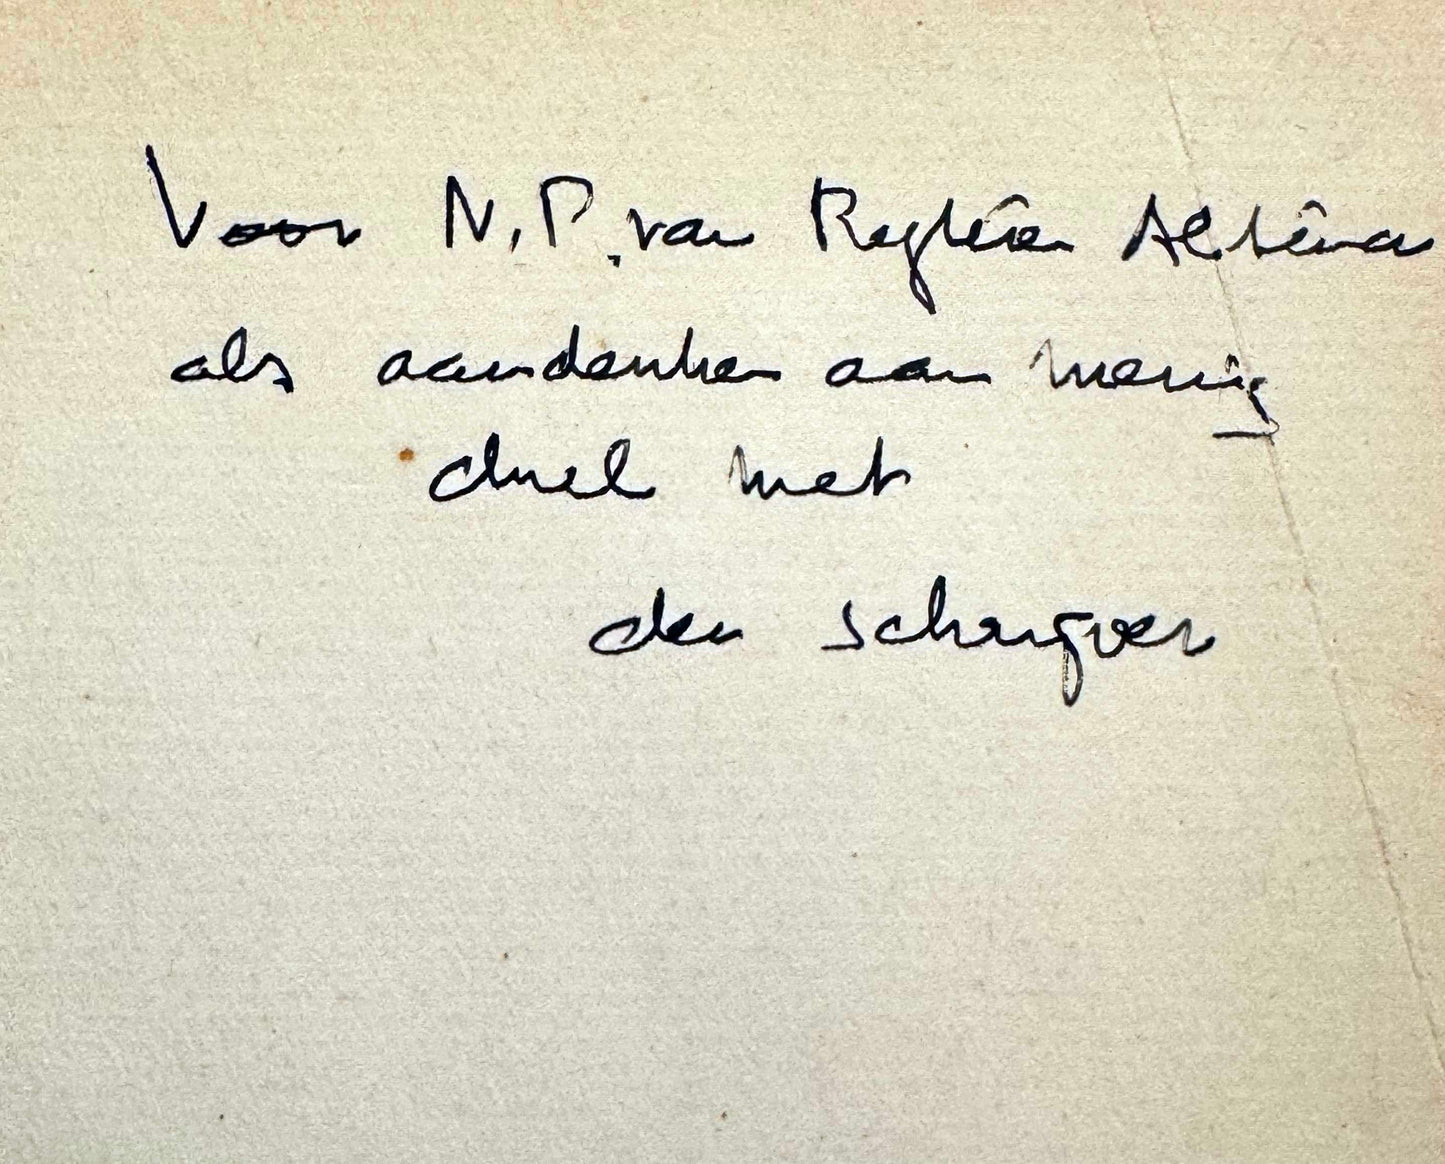 Voor N.P. van Regtêren Altêna
als aandenken aan menig
duel met
den schrijver